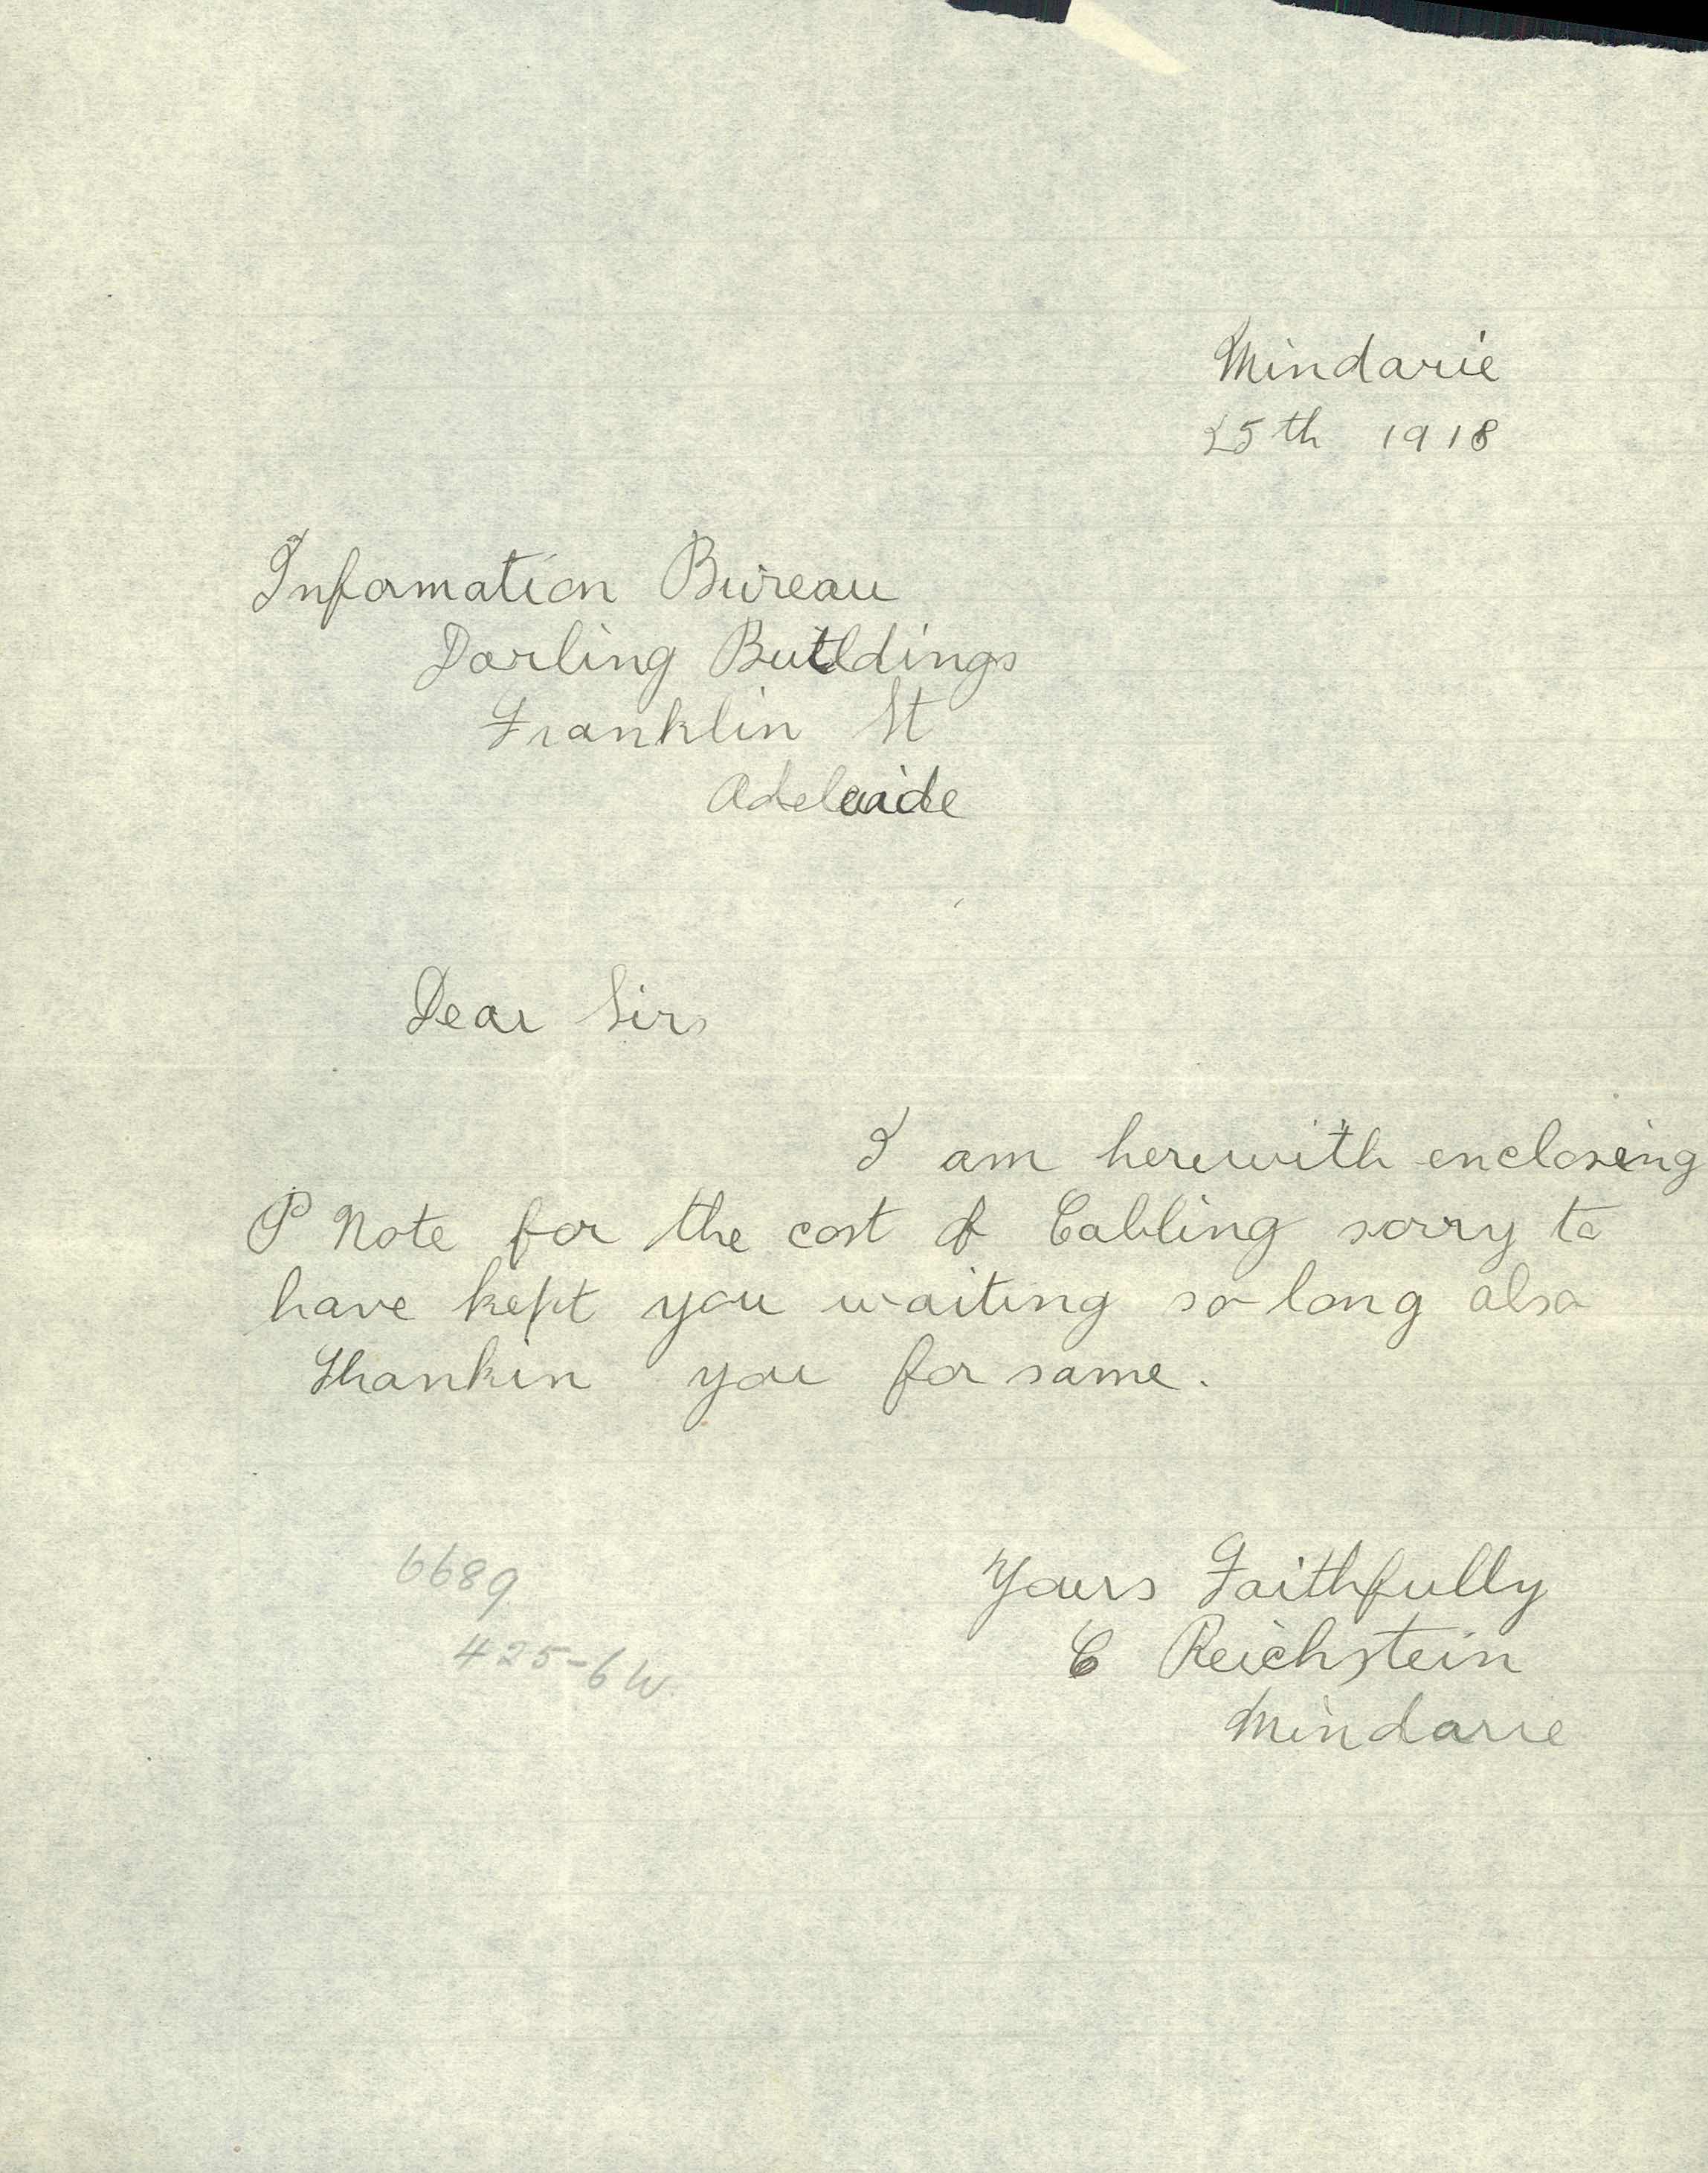 Mindarie
25th 1918
Information Bureau
Darling Buildings
Franklin St
Adelaide
Dear Sirs
I am herewith enclosing
P Note for the cost of Cabling sorry to
have kept you waiting so long also
Thankin you for same.
Yours Faithfully
C Reichstein
Mindarie
6689
425-6W